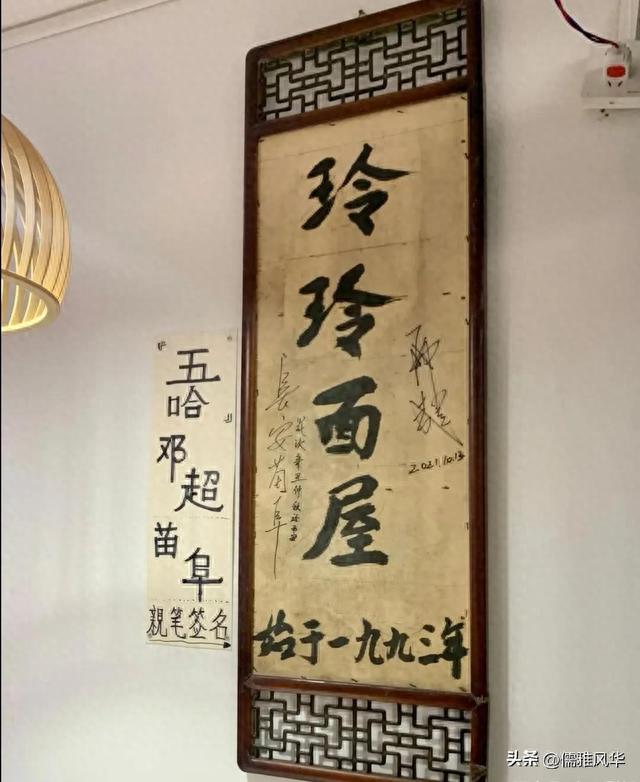 玲玲面屋
邓超
2021.10.13
長安苗阜
始于一九九三年
五哈
邓超
苗阜
親笔签名
头条 @儒雅风华